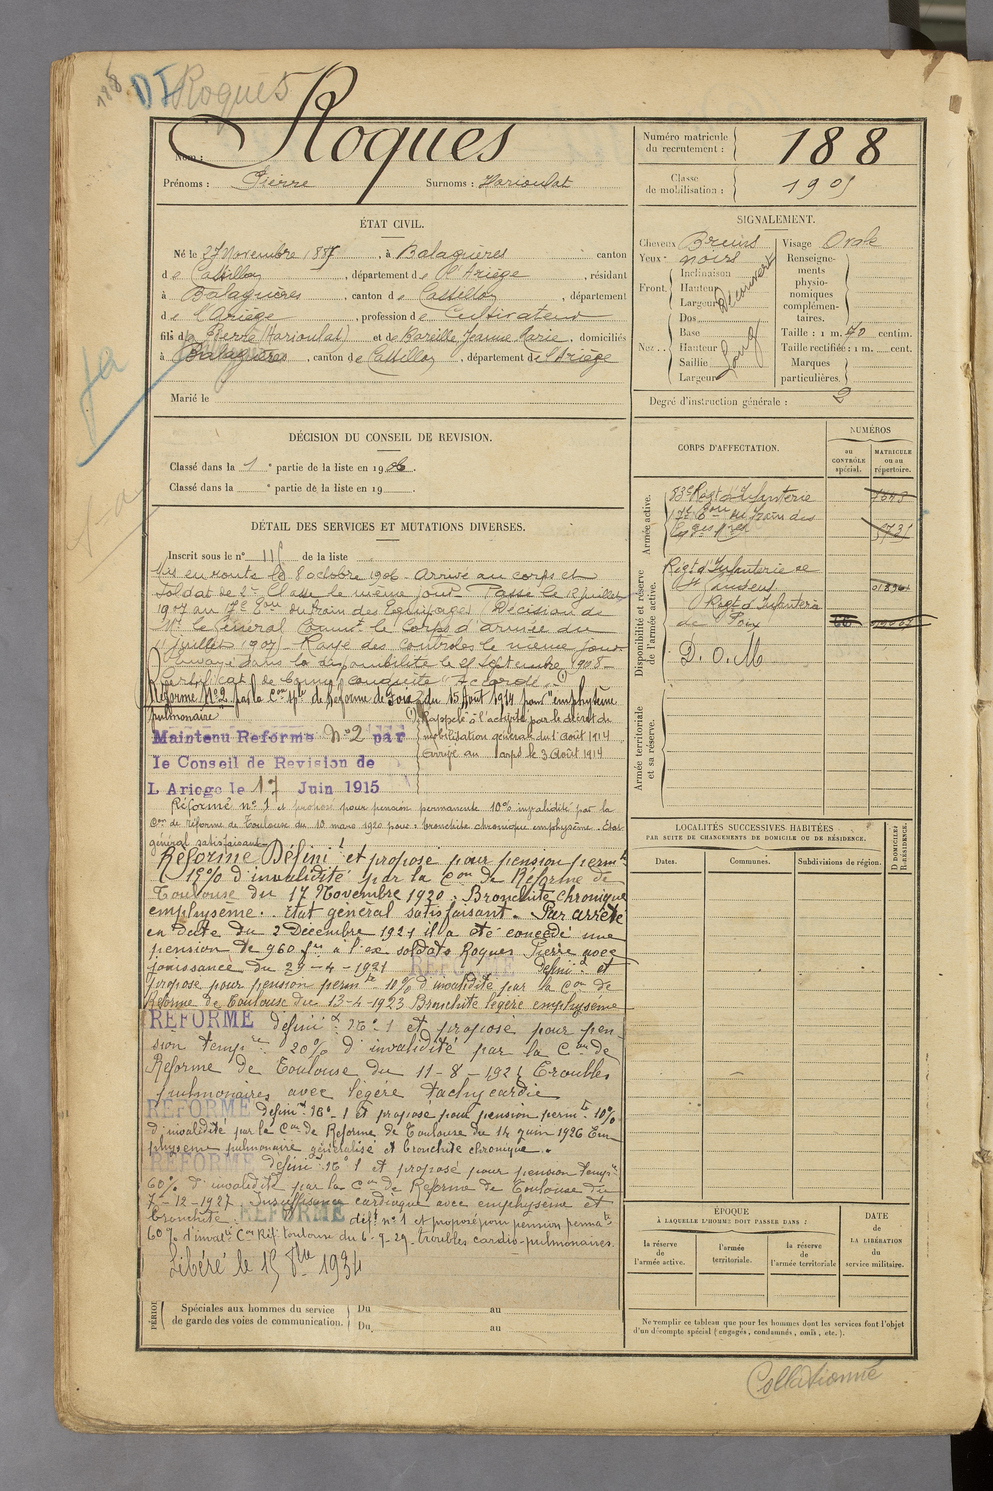 188
DI Roques
Nom : Roques
Prénoms : Pierre Surnoms : Harioulat
Numéro matricule du recrutement : 188
Classe de mobilisation : 1905
ÉTAT CIVIL.
Né le 27 Novembre 1885, à Balaguères canton
de Castillon, département de l'Ariège, résidant
à Balaguères, canton de Castillon, département
de l'Ariège, profession de Cultivateur
fils de Pierre (Harioulat) et de Bareille Jeanne Marie, domiciliés
à Balaguères, canton de Castillon, département de l'Ariège
Marié le
SIGNALEMENT.
Cheveux Bruns
Yeux noirs
Front. Inclinaison Hauteur Largeur Découvert
Nez. Dos Base Hauteur Saillie Largeur Long
Visage Ovale
Renseignements physionomiques complémentaires.
Taille : 1 m. 70 centim.
Taille rectifiée : 1 m. cent.
Marques particulières.
Degré d'instruction générale : 2
DÉCISION DU CONSEIL DE REVISION.
Classé dans la 1e partie de la liste en 1906.
Classé dans la e partie de la liste en 19
DÉTAIL DES SERVICES ET MUTATIONS DIVERSES.
Inscrit sous le n° 115 de la liste
Mis en route le 8 octobre 1906. Arrivé au corps et
Soldat de 2e Classe le même jour. Passé le 12 juillet
1907 au 17e Eon du train des Equipages (Décision de
Mr le Général Commt le Corps d'armée du
juillet 1907) Rayé des contrôles le même jour
Envoyé dans la disponibilité le 21 Septembre 1908 -
Certificat de bonne conduite "Accordé" (1)
Réforme N° 2 par la Con Sple de Réforme de Foix du 15 Août 1914 pour "emphysème
pulmonaire
(1) Rappelé à l'activité par le décret de
mobilisation générale du 1 août 1914
arrivé au corps le 3 Août 1914
Maintenu Reforme N° 2 par
le Conseil de Revision de
L Ariege le 17 Juin 1915
Réformé n° 1 et proposé pour pension permanente 10% invalidité par la
Con de réforme de Toulouse du 10 mars 1920 pour : bronchite chronique emphysème. Etat
général satisfaisant
Réforme Définit et proposé pour pension permte
15% d'invalidité par la Con de Réforme de
Toulouse du 17 Novembre 1920 : Bronchite chronique
emphysème. Etat général satisfaisant. Par arrêté
en date du 2 Décembre 1921 il a été concédé une
pension de 960 frs à l'ex soldat Roques Pierre avec
jouissance du 29-4-1921 REFORME définit et
proposé pour pension permte 10% d'invalidité par la Con de
Réforme de Toulouse du 13-4-1923 Bronchite légère emphysème
REFORME définit N° 1 et proposé pour pen-
sion tempre 20% d'invalidité par la Con de
Réforme de Toulouse du 11-8-192 Troubles
pulmonaires avec légère tachycardie
REFORME définit N° 1 et proposé pour pension permte 10%
d'invalidité par la Con de Réforme de Toulouse du 14 juin 1926 Em-
physème pulmonaire généralisé et bronchite chronique.
REFORME définit N° 1 et proposé pour pension tempre
60% d'invalidité par la Con de Réforme de Toulouse du
7-12-1927. Insuffisance cardiaque avec emphysème et
bronchite. REFORME déft n° 1 et proposé pour pension permte
60% d'invalté Con Réf. Toulouse du 6-9-29. troubles cardio-pulmonaires.
Libéré le 15 8bre 1934
PÉRIO
Spéciales aux hommes du service de garde des voies de communication.
Du au
Du au
CORPS D'AFFECTATION.
NUMÉROS
au CONTRÔLE spécial.
MATRICULE ou au répertoire.
Armée active.
83e Régt d'Infanterie
17e Eon du train des
Eqges Mres
5731
Disponibilité et réserve de l'armée active.
Régt d'Infanterie de
St Gaudens
Régt d'Infanterie
de Foix
D. O. M
Armée territoriale et sa réserve.
LOCALITÉS SUCCESSIVES HABITÉES
PAR SUITE DE CHANGEMENTS DE DOMICILE OU DE RÉSIDENCE.
Dates. Communes. Subdivisions de région. D DOMICILE. R RÉSIDENCE.
ÉPOQUE
À LAQUELLE L'HOMME DOIT PASSER DANS :
la réserve de l'armée active. l'armée territoriale. la réserve de l'armée territoriale
DATE de LA LIBÉRATION du service militaire.
Ne remplir ce tableau que pour les hommes dont les services font l'objet
d'un décompte spécial (engagés, condamnés, omis, etc.).
Collationné